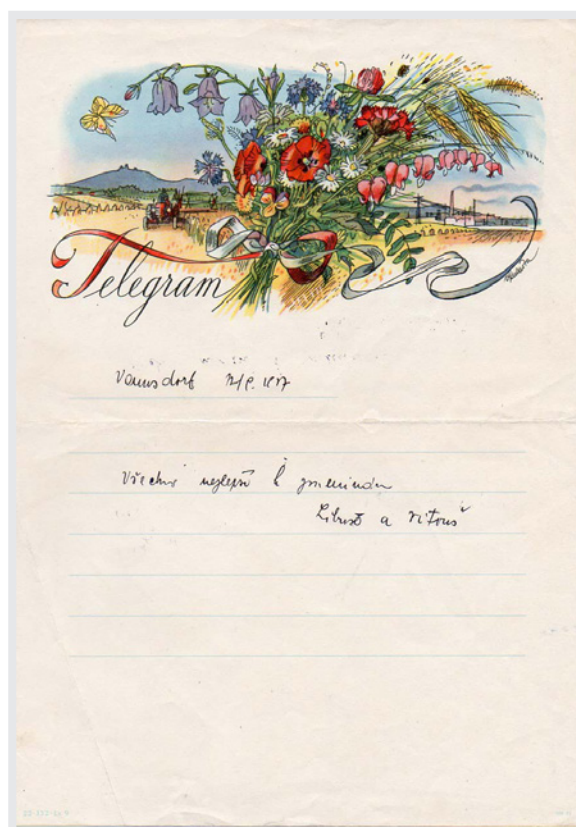 Telegram
Varnsdorf
Všechno nejlepší k jmeninám
Libuše a Vítouš